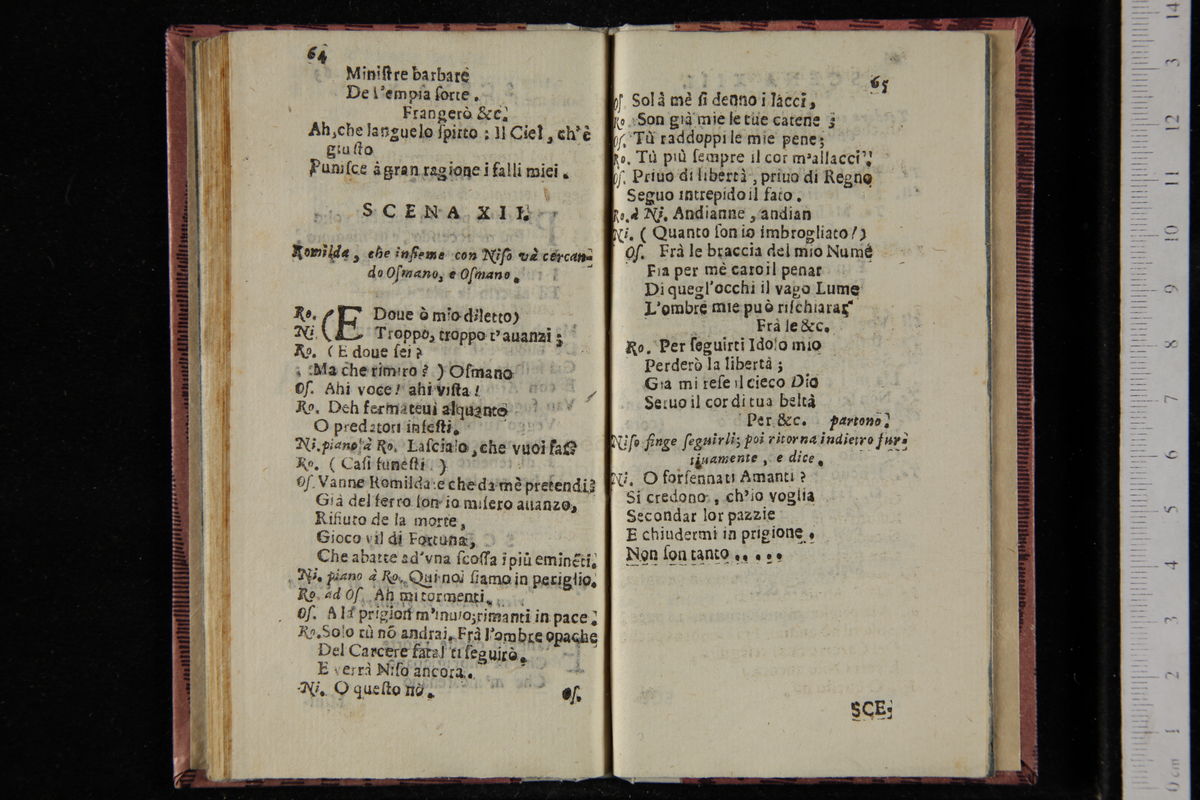 64
Miniſtre barbare
De l'empia ſorte.
Frangerò &c.
Ah, che langue lo ſpirto: Il Ciel, ch'è
giuſto
Puniſce à gran ragione i falli miei.
SCENA XII.
Romilda, che inſieme con Niſo và cercan-
do Oſmano, e Oſmano.
Ro. (E Doue ò mio diletto)
Ni. (Troppo, troppo t'auanzi;
Ro. (E doue ſei?
Ma che rimiro?) Oſmano
Oſ. Ahi voce! ahi viſta!
Ro. Deh fermateui alquanto
O predatori infeſti.
Ni. piano à Ro. Laſcialo, che vuoi far?
Ro. (Caſi funeſti)
Oſ. Vanne Romilda: e che da mè pretendi?
Già del ferro ſon' io miſero auanzo,
Rifiuto de la morte,
Gioco vil di Fortuna,
Che abatte ad'vna ſcoſſa i più eminēti.
Ni. piano à Ro. Qui noi ſiamo in periglio.
Ro. ad Oſ. Ah mi tormenti.
Oſ. A la prigion m'inuio; rimanti in pace.
Ro. Solo tù nō andrai. Frà l'ombre opache
Del Carcere fatal ti ſeguirò.
E verrà Niſo ancora.
Ni. O queſto nò.
Oſ.
65
Oſ. Sol à mè ſi denno i lacci,
Ro. Son già mie le tue catene;
Oſ. Tù raddoppi le mie pene;
Ro. Tù più ſempre il cor m'allacci!
Oſ. Priuo di libertà, priuo di Regno
Seguo intrepido il fato.
Ro. à Ni. Andianne, andian
Ni. (Quanto ſon io imbrogliato!)
Oſ. Frà le braccia del mio Nume
Fia per mè caro il penar
Di quegl'occhi il vago Lume
L'ombre mie può riſchiarar
Frà le &c.
Ro. Per ſeguirti Idolo mio
Perderò la libertà;
Gia mi reſe il cieco Dio
Seruo il cor di tua beltà
Per &c. partono.
Niſo finge ſeguirli; poi ritorna indietro fur-
tiuamente, e dice.
Ni. O forſennati Amanti?
Si credono, ch'io voglia
Secondar lor pazzie
E chiudermi in prigione.
Non ſon tanto.....
SCE-